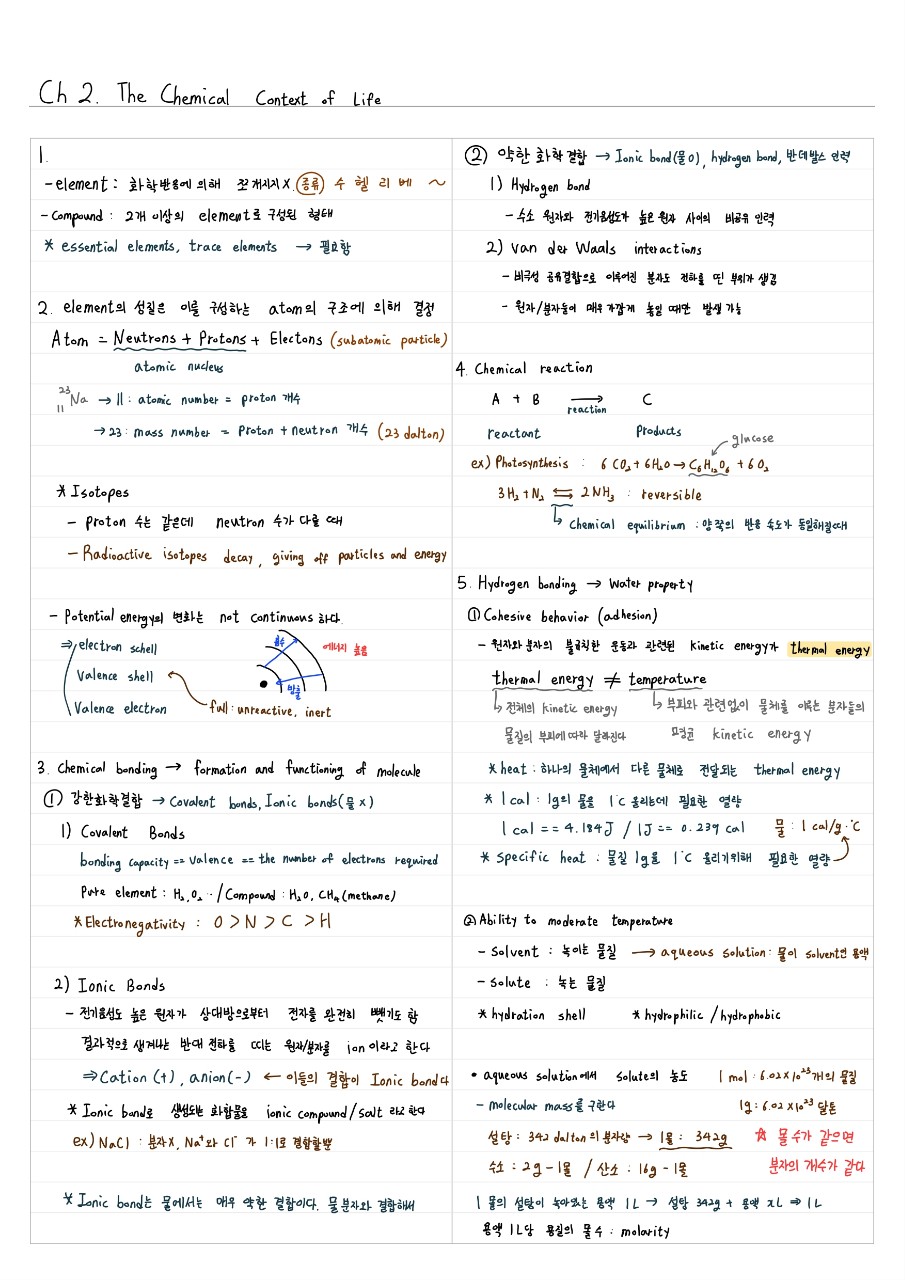 Ch 2. The Chemical Context of Life
1.
- element : 화학반응에 의해 쪼개지지 X. 종류 수 헬 리 베 ~
- Compound : 2개 이상의 element로 구성된 형태
* essential elements, trace elements → 필요함
2. element의 성질은 이를 구성하는 atom의 구조에 의해 결정
Atom = Neutrons + Protons + Electons (subatomic particle)
atomic nucleus
23 11 Na → 11 : atomic number = proton 개수
→ 23 : mass number = Proton + neutron 개수 (23 dalton)
* Isotopes
- proton 수는 같은데 neutron 수가 다를 때
- Radioactive isotopes decay, giving off particles and energy
- Potential energy의 변화는 not continuous 하다.
⇒ electron schell
Valence shell
Valence electron
흡수
방출
에너지 높음
full : unreactive, inert
3. Chemical bonding → formation and functioning of molecule
① 강한화학결합 → Covalent bonds, Ionic bonds (물 x)
1) Covalent Bonds
bonding capacity == valence == the number of electrons required
Pure element : H₂, O₂ ·· / Compound : H₂O, CH₄ (methane)
* Electronegativity : O > N > C > H
2) Ionic Bonds
- 전기음성도 높은 원자가 상대방으로부터 전자를 완전히 뺏기도 함
결과적으로 생겨나는 반대 전하를 띠는 원자/분자를 ion 이라고 한다
⇒ Cation (+), anion (-) ← 이들의 결합이 Ionic bond다
* Ionic bond로 생성되는 화합물을 ionic compound / salt 라고 한다
ex) NaCl : 분자 X, Na⁺와 Cl⁻가 1:1로 결합할뿐
* Ionic bond는 물에서는 매우 약한 결합이다. 물 분자와 결합해서
② 약한 화학 결합 → Ionic bond (물 O), hydrogen bond, 반데발스 인력
1) Hydrogen bond
- 수소 원자와 전기음성도가 높은 원자 사이의 비공유 인력
2) van der Waals interactions
- 비극성 공유결합으로 이루어진 분자도 전하를 띤 부위가 생김
- 원자/분자들이 매우 가깝게 놓일 때만 발생 가능
4. Chemical reaction
A + B → C
reaction
reactant Products
glucose
ex) Photosynthesis : 6 CO₂ + 6H₂O → C₆H₁₂O₆ + 6O₂
3H₂ + N₂ ⇆ 2NH₃ : reversible
Chemical equilibrium : 양쪽의 반응 속도가 동일해질때
5. Hydrogen bonding → Water property
① Cohesive behavior (adhesion)
- 원자와 분자의 불규칙한 운동과 관련된 kinetic energy가 thermal energy
thermal energy ≠ temperature
전체의 kinetic energy
부피와 관련없이 물체를 이루는 분자들의
물질의 부피에 따라 달라진다
평균 kinetic energy
* heat : 하나의 물체에서 다른 물체로 전달되는 thermal energy
* 1 cal : 1g의 물을 1℃ 올리는데 필요한 열량
1 cal == 4.184J / 1J == 0.239 cal 물 : 1 cal/g·℃
* Specific heat : 물질 1g을 1℃ 올리기위해 필요한 열량
② Ability to moderate temperature
- Solvent : 녹이는 물질 → aqueous solution : 물이 solvent인 용액
- solute : 녹는 물질
* hydration shell * hydrophilic / hydrophobic
• aqueous solution에서 solute의 농도 1 mol : 6.02×10²³개의 물질
- molecular mass를 구한다 1g : 6.02×10²³ 달톤
설탕 : 342 dalton의 분자량 → 1몰 : 342g ☆ 몰 수가 같으면
수소 : 2g - 1몰 / 산소 : 16g - 1몰 분자의 개수가 같다
1 몰의 설탕이 녹아있는 용액 1L → 설탕 342g + 용액 xL ⇒ 1L
용액 1L당 용질의 몰 수 : molarity